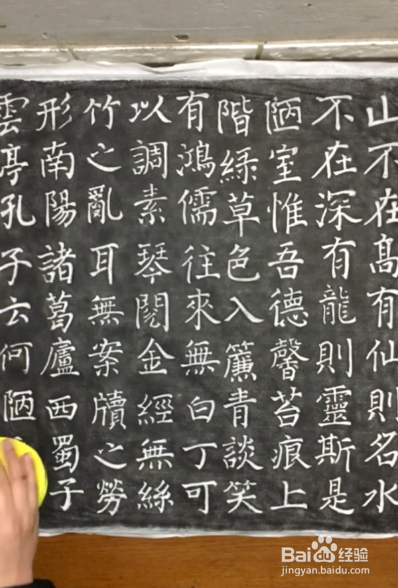 山不在髙有仙則名水
不在深有龍則靈斯是
陋室惟吾德馨苔痕上
階綠草色入簾青談笑
有鴻儒往來無白丁可
以調素琴閱金經無絲
竹之亂耳無案牘之勞
形南陽諸葛廬西蜀子
雲亭孔子云何陋
Bai度经验
jingyan.baidu.com